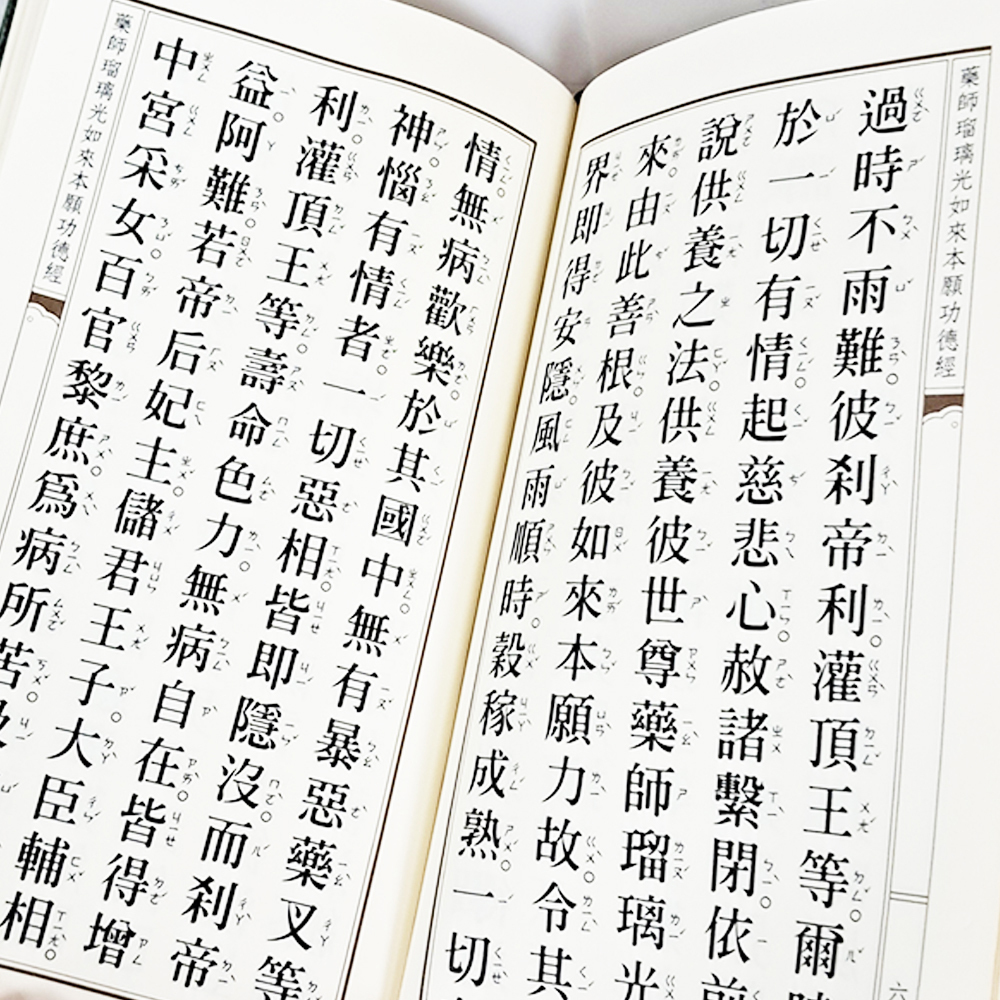 藥師瑠璃光如來本願功德經
六
過時不雨難。彼剎帝利。灌頂王等。爾時
於一切有情起慈悲心。赦諸繫閉。依前
說供養之法。供養彼世尊藥師瑠璃光
來。由此善根及彼如來本願力故。令其
界即得安隱。風雨順時。穀稼成熟。一切
情。無病歡樂。於其國中。無有暴惡藥叉等
神。惱有情者。一切惡相。皆即隱沒。而剎帝
利。灌頂王等。壽命色力。無病自在。皆得增
益。阿難。若帝后妃主。儲君王子。大臣輔相。
中宮采女。百官黎庶。爲病所苦。及
藥師瑠璃光如來本願功德經